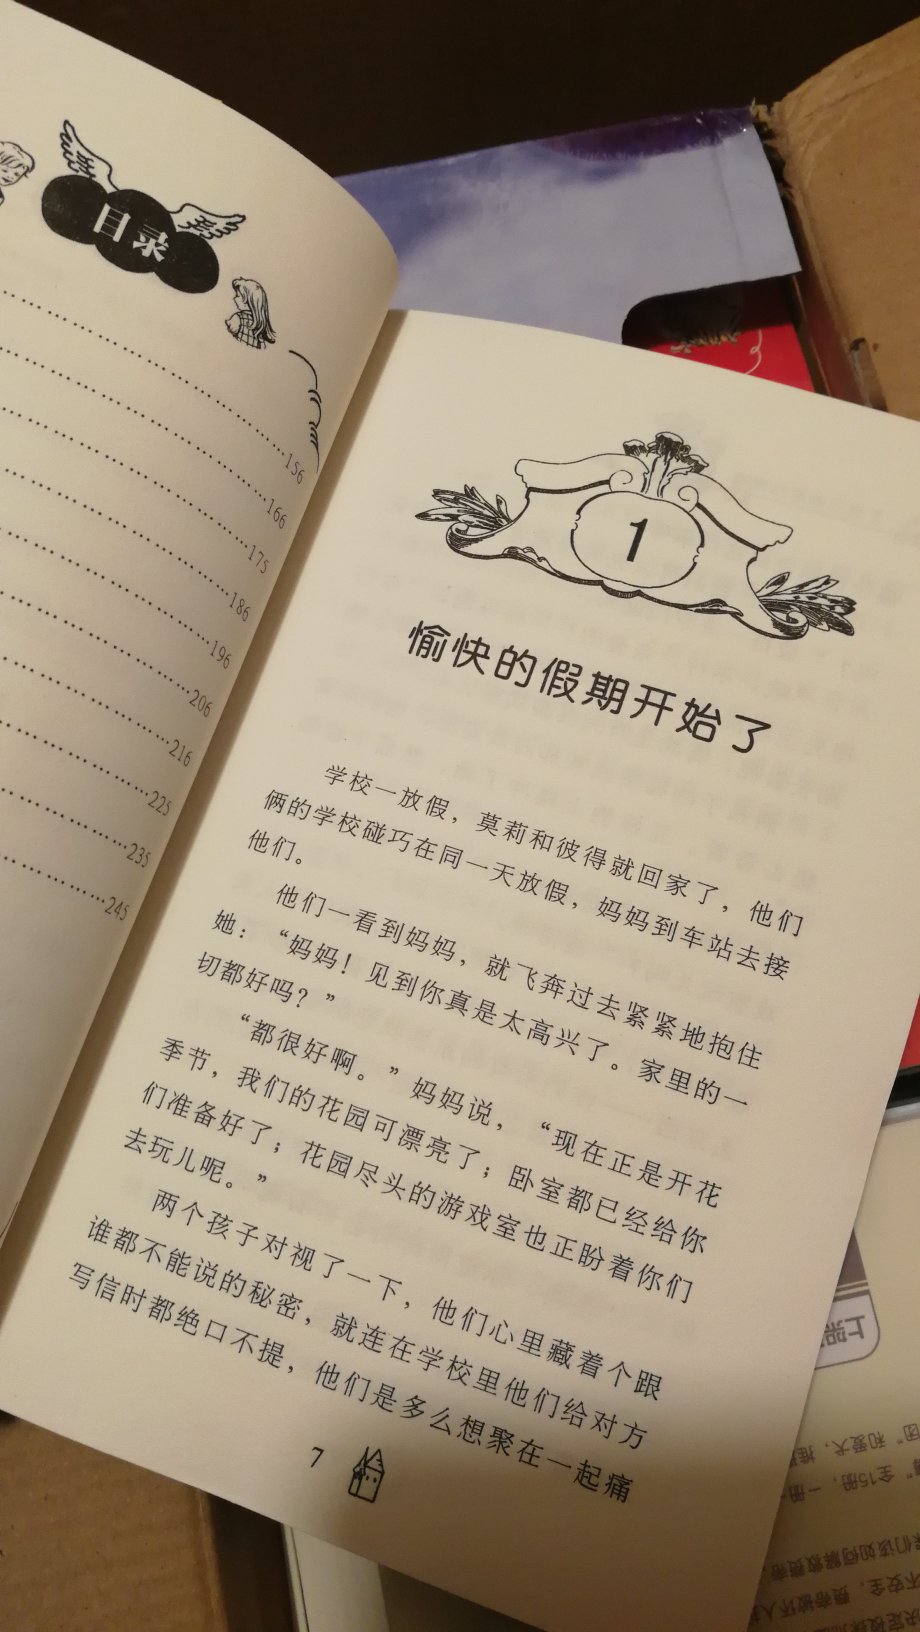 目录
156
166
175
186
196
206
216
225
235
245
1
愉快的假期开始了
学校一放假，莫莉和彼得就回家了，他们
俩的学校碰巧在同一天放假，妈妈到车站去接
他们。
他们一看到妈妈，就飞奔过去紧紧地抱住
她：“妈妈！见到你真是太高兴了。家里的一
切都好吗？”
“都很好啊。”妈妈说，“现在正是开花
季节，我们的花园可漂亮了；卧室都已经给你
们准备好了；花园尽头的游戏室也正盼着你们
去玩儿呢。”
两个孩子对视了一下，他们心里藏着个跟
谁都不能说的秘密，就连在学校里他们给对方
写信时都绝口不提，他们是多么想聚在一起痛
7
上架
团”和爱犬，
”全15册，一册
们该如何解救费蒂
不安全，费蒂被坏人